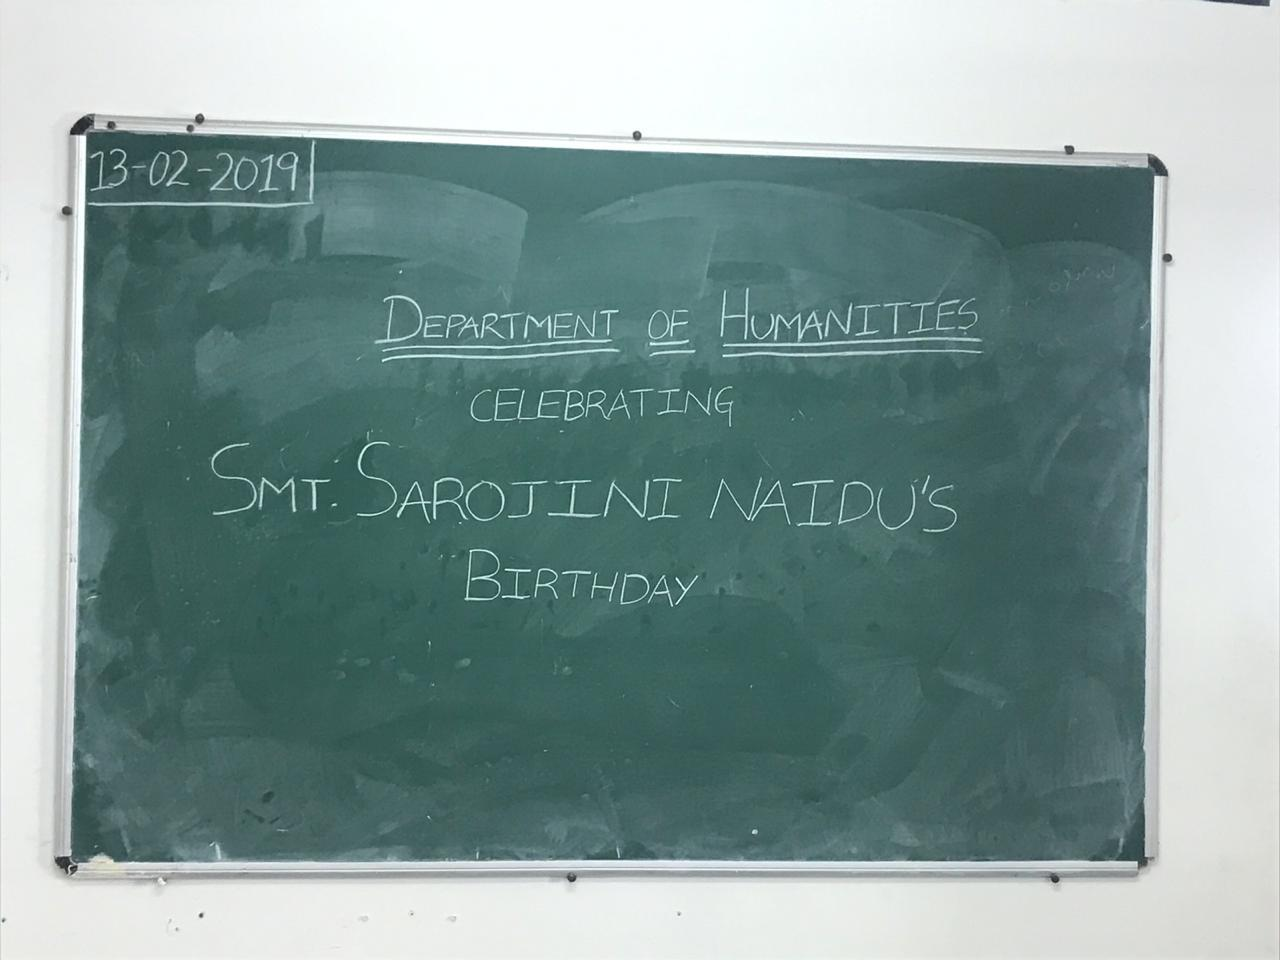 13-02-2019
DEPARTMENT OF HUMANITIES
CELEBRATING
SMT. SAROJINI NAIDU'S
BIRTHDAY